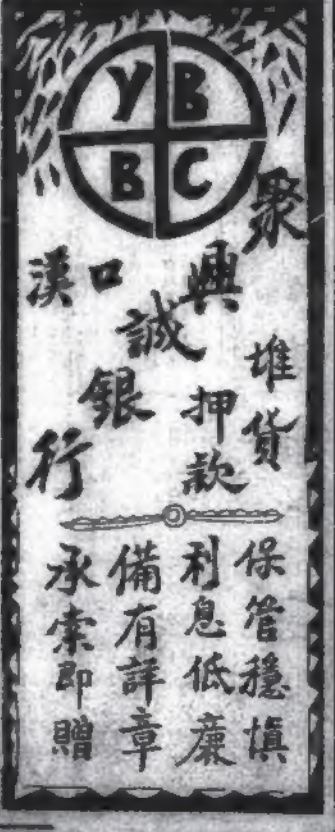 YB
BC
聚興誠銀行
漢口
堆貨
押款
保管穩愼
利息低廉
備有詳章
承索即贈